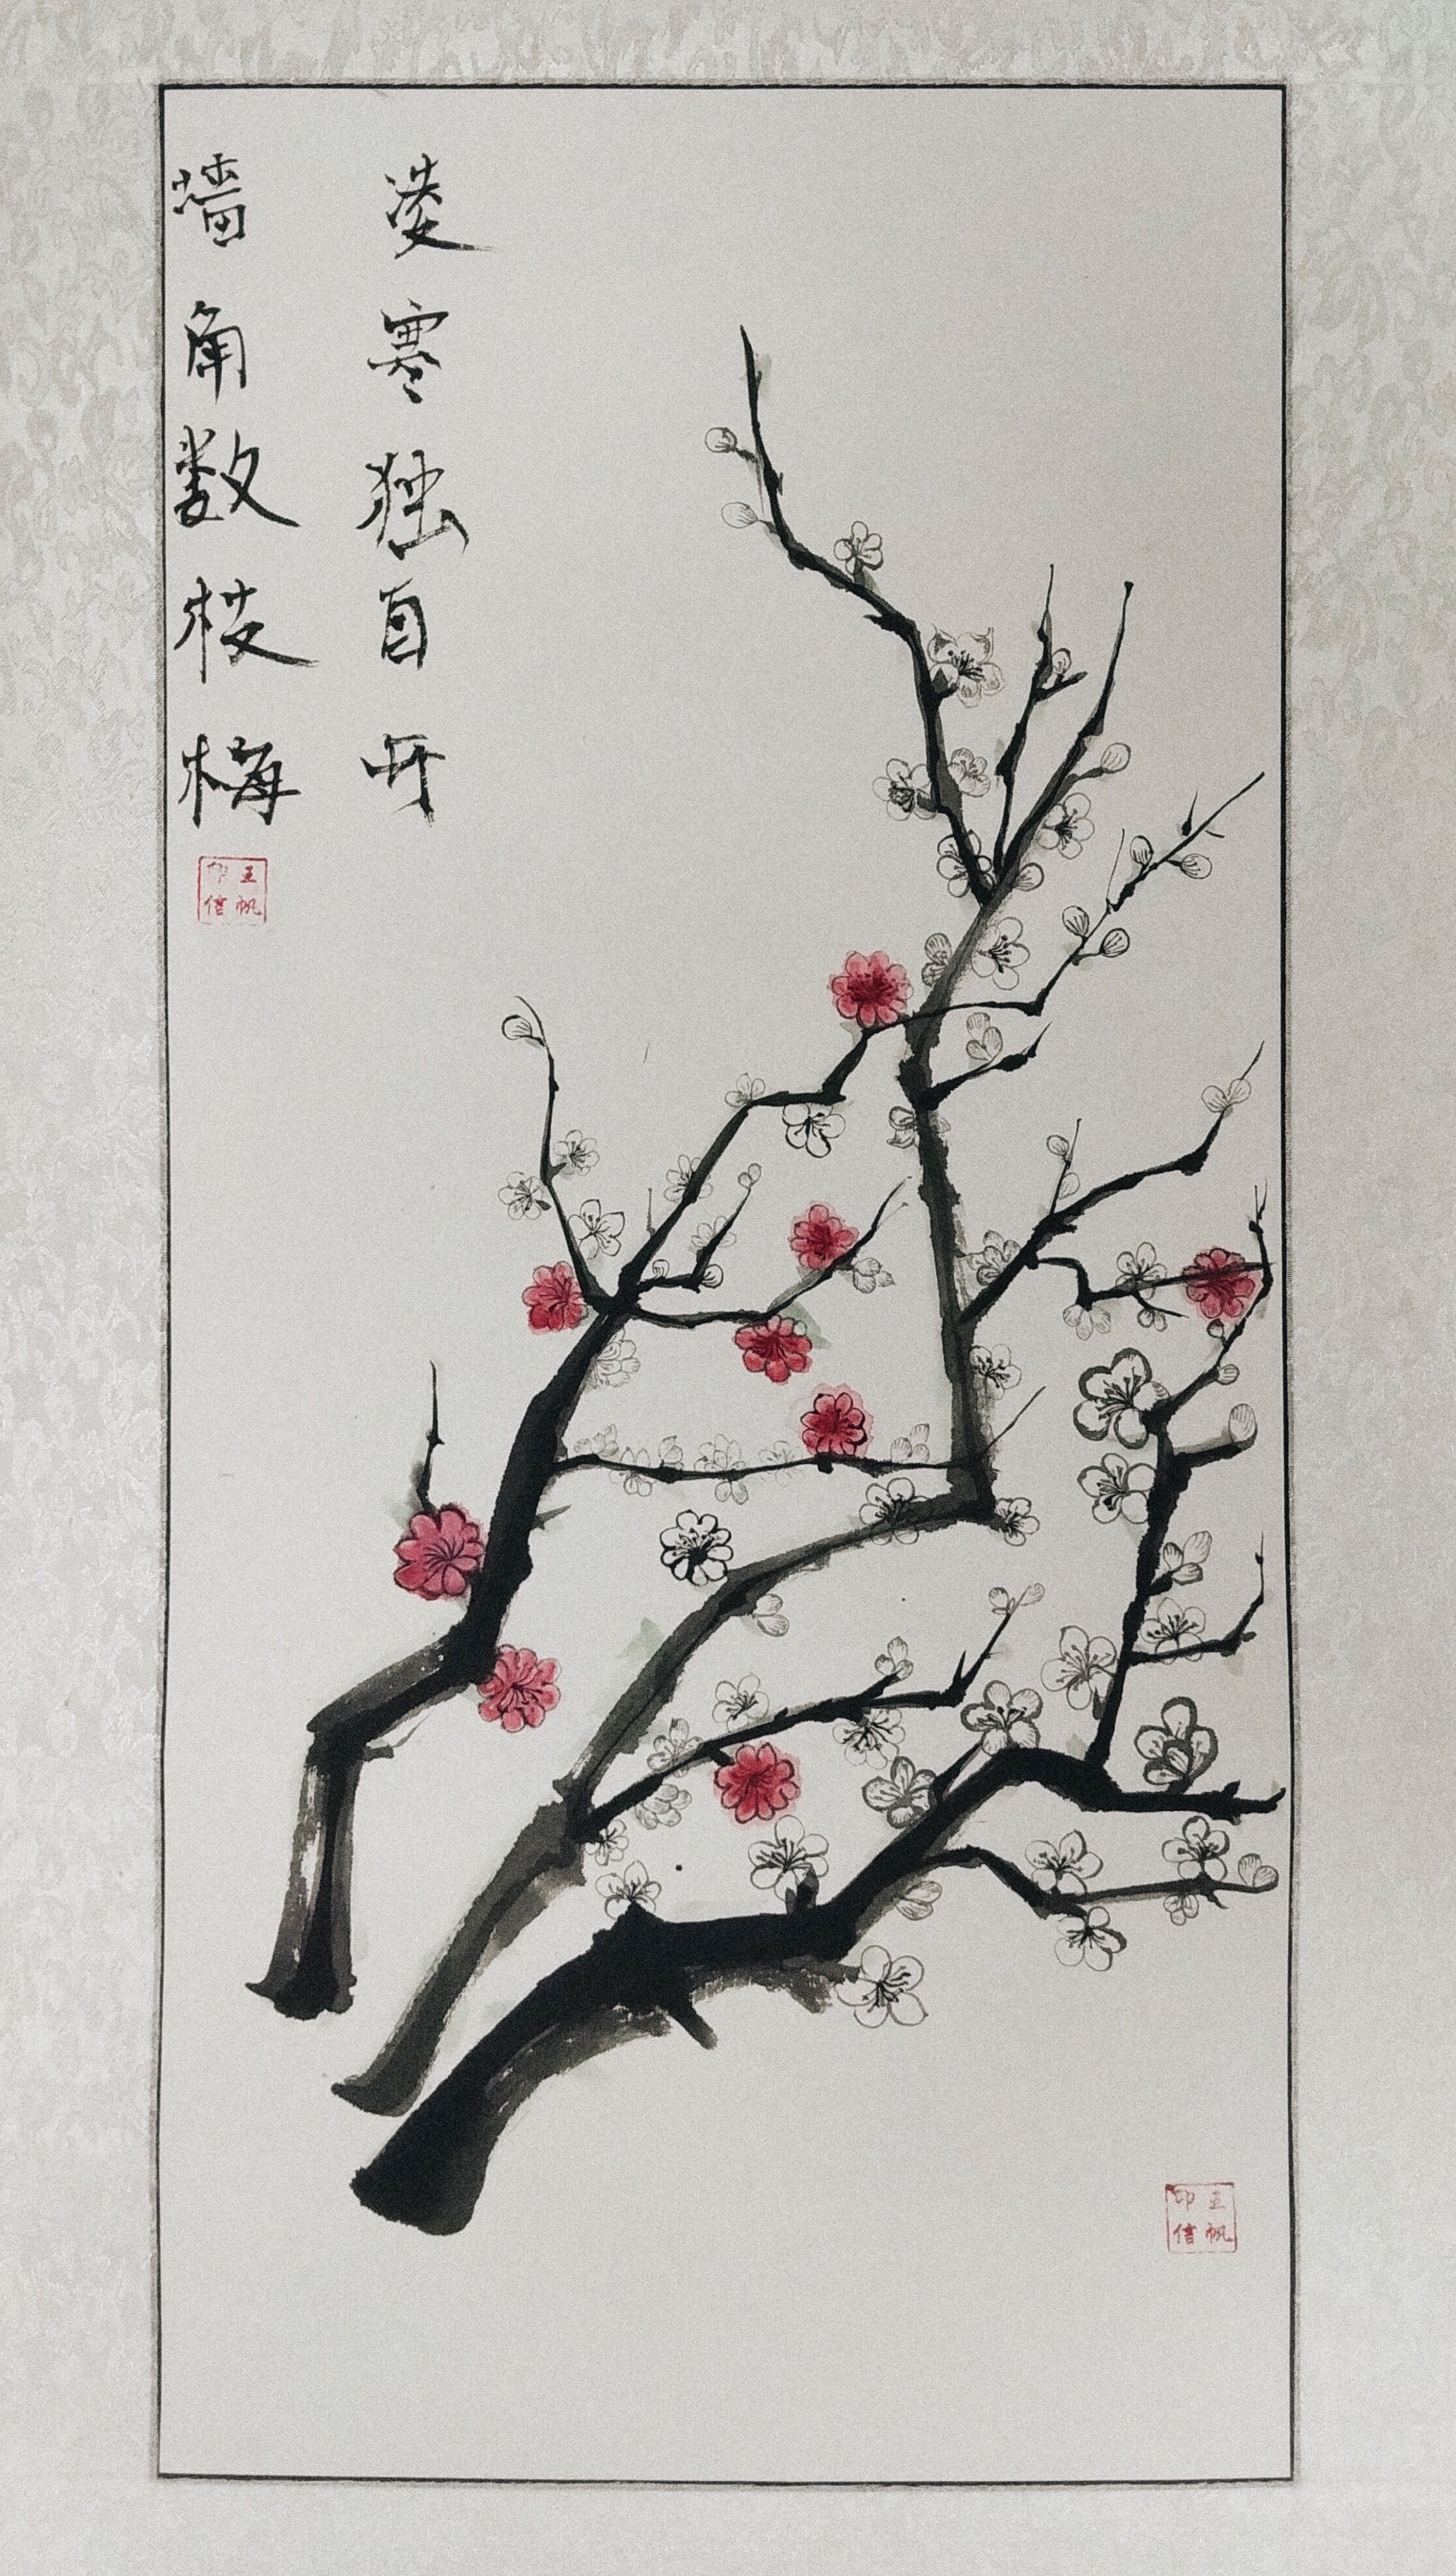 墙角数枝梅
凌寒独自开
王帆
印信
王帆
印信